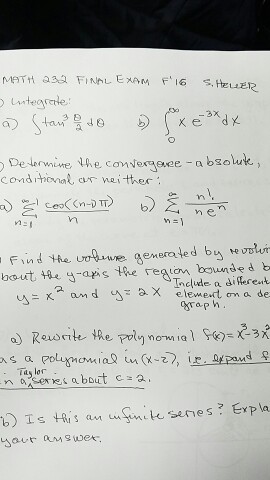 MATH 232 FINAL EXAM F'16 S. HELLER
) Integrate:
a) ∫ tan³ θ/2 dθ b) ∫₀^∞ x e^(-3x) dx
) Determine the convergence - absolute,
conditional or neither:
a) Σ_(n=1)^∞ cos((n-1)π)/n b) Σ_(n=1)^∞ n!/(n eⁿ)
Find the volume generated by
about the y-axis the region bounded
y = x² and y = 2x Include a
element on a
graph.
a) Rewrite the polynomial f(x) = x³-3x²
as a polynomial in (x-2), i.e. expand f
in a Taylor series about c = 2.
b) Is this an infinite series?
your answer.